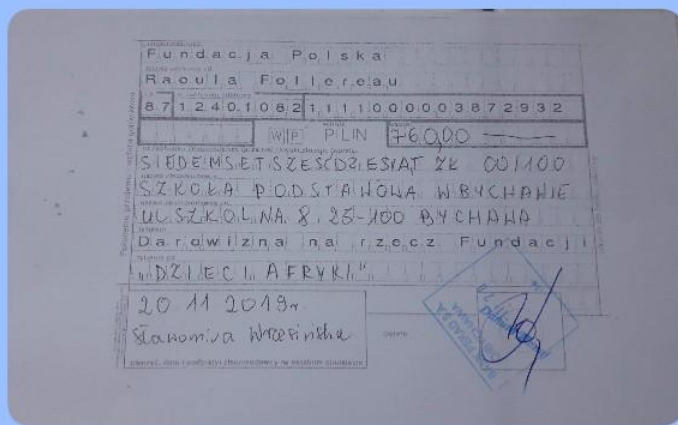 Fundacja Polska
Raoula Follereau
87 1240 1082 1111 0000 0387 2932
W P PLN 760,00
SIEDEMSETSZEŚĆDZIESIĄT ZŁ 00/100
SZKOŁA PODSTAWOWA W BYCHAWIE
UL SZKOLNA 8, 25-100 BYCHAWA
Darowizna na rzecz Fundacji
"DZIECI AFRYKI"
20 11 2019r
Sławomira Wrzesińska
Opłata